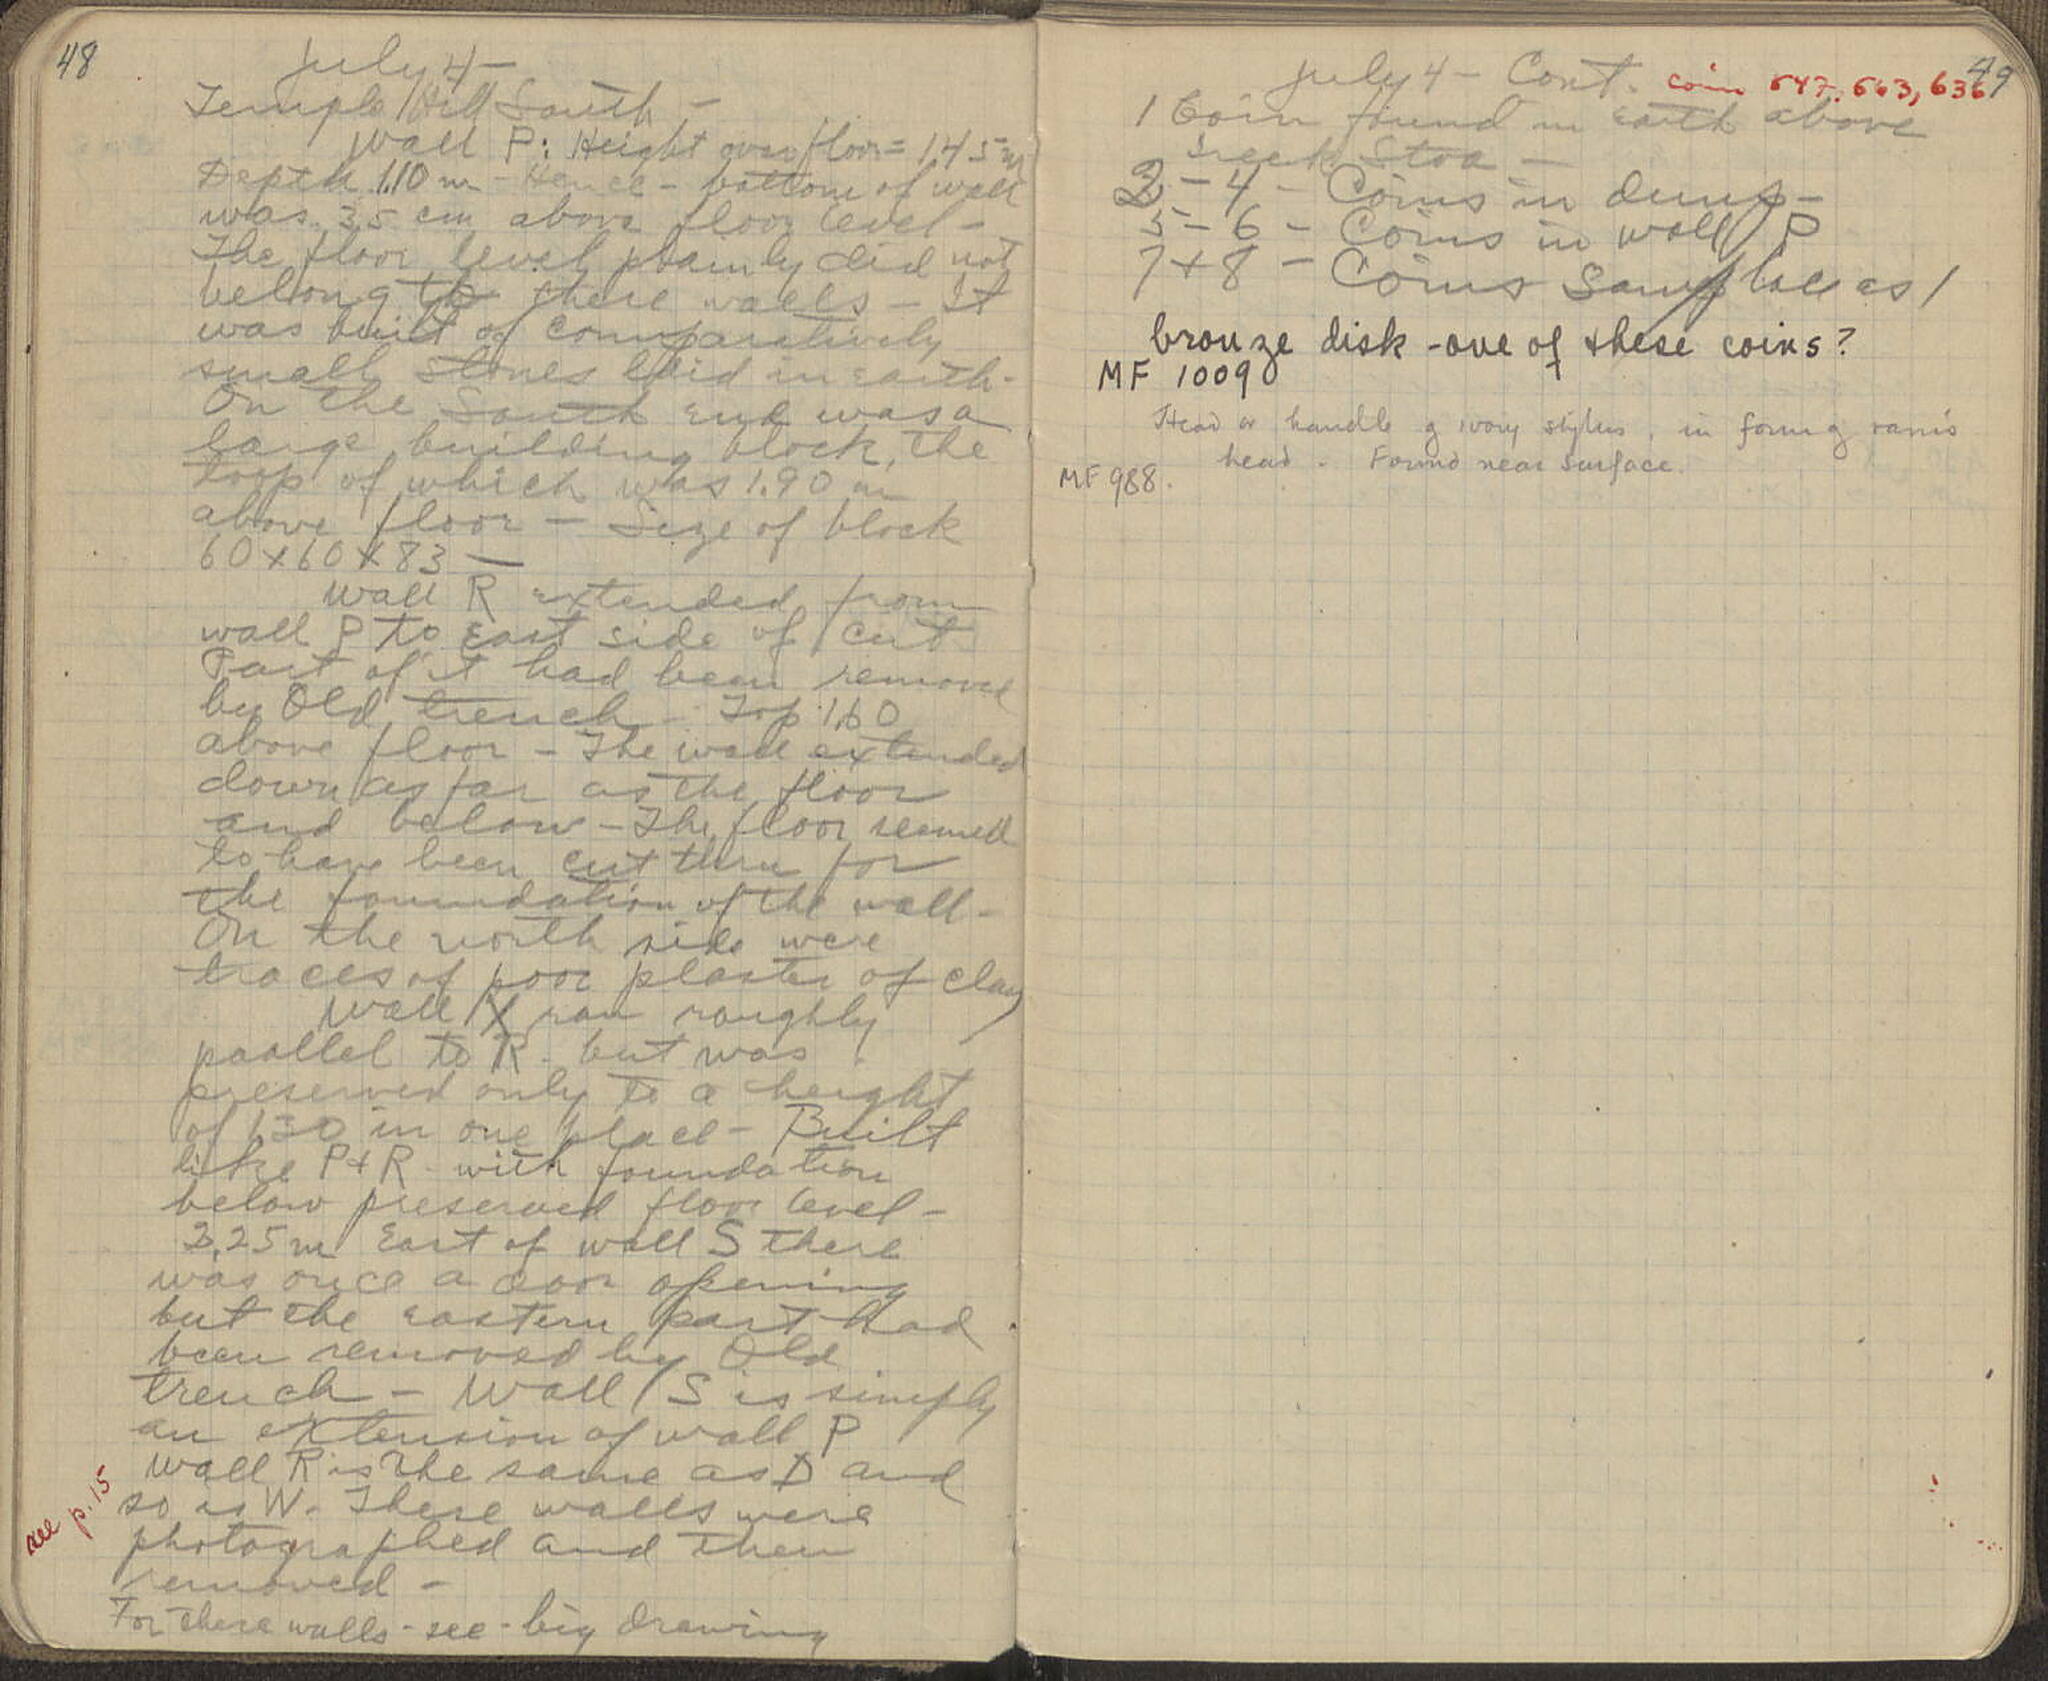 48
July 4 -
Temple Hill South -
Wall P: Height over floor = 1.45 m
Depth 1.10 m - Hence - bottom of wall
was 35 cm above floor level -
The floor level plainly did not
belong to these walls - It
was built of comparatively
small stones laid in earth -
On the South end was a
large building block, the
top of which was 1.90 m
above floor - Size of block
60 x 60 x 83 -
Wall R extended from
wall P to East side of cut
Part of it had been removed
by Old trench - Top 1.60
above floor - The wall extended
down as far as the floor
and below - The floor seemed
to have been cut thru for
the foundation of the wall -
On the north side were
traces of poor plaster of clay
Wall ran roughly
parallel to R - but was
preserved only to a height
of 1.30 in one place - Built
like P + R - with foundation
below preserved floor level -
3.25 m East of wall S there
was once a door opening
but the eastern part had
been removed by Old
trench - Wall S is simply
an extension of wall P
Wall R is the same as D and
so is W - These walls were
see p. 15
photographed and then
removed -
For these walls - see - big drawing
49
July 4 - Cont. coin 647, 663, 636
1 Coin found in earth above
Greek Stoa -
2 - 4 - Coins in dump -
5 - 6 - Coins in wall P
7 + 8 - Coins same place as 1
bronze disk - one of these coins?
MF 1009
Head or handle of ivory stylus, in form of ram's
head - Found near surface.
MF 988.